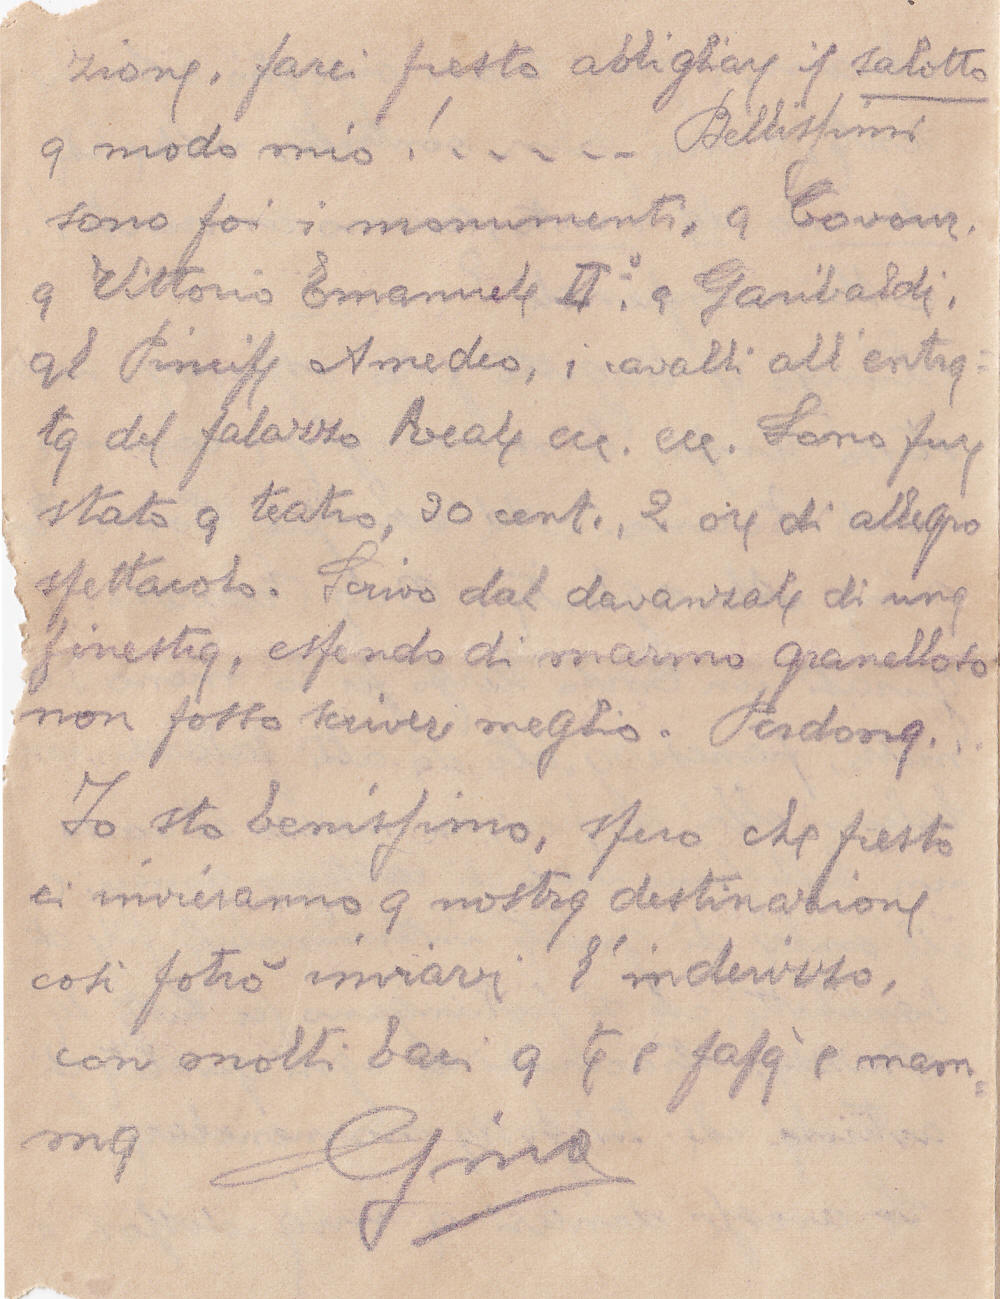 zione, farei presto abbigliare il salotto
a modo mio! - - - - - - Bellissimi
sono poi i monumenti, a Cavour,
a Vittorio Emanuele II°: a Garibaldi,
al Principe Amedeo, i cavalli all'entra=
ta del palazzo Reale ecc. ecc. Sono pure
stato a teatro, 30 cent., 2 ore di allegro
spettacolo. Scrivo dal davanzale di una
finestra, essendo di marmo granelloso
non posso scrivere meglio. Perdona...
Io sto benissimo, spero che presto
ci invieranno a nostra destinazione
così potrò inviarvi l'inderizzo,
con molti baci a te e papà e mam=
ma Gino